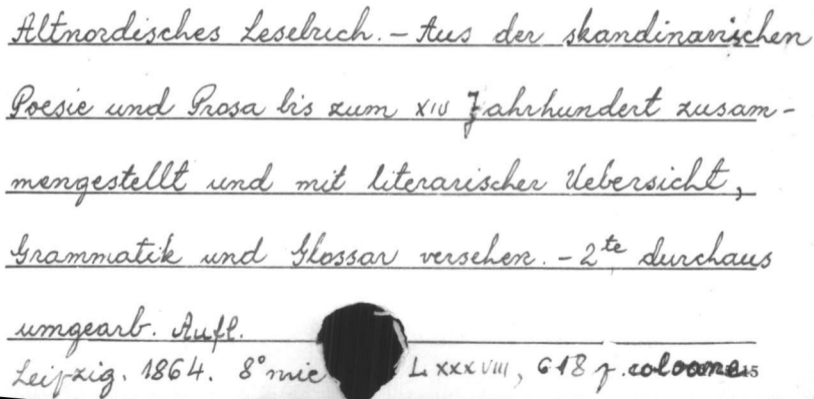 Altnordisches Lesebuch. - Aus der skandinavischen
Poesie und Prosa bis zum XIV Jahrhundert zusam-
mengestellt und mit literarischer Uebersicht,
Grammatik und Glossar versehen. - 2te durchaus
umgearb. Aufl.
Leipzig. 1864. 8° mic LXXXVIII, 618 p. coloane